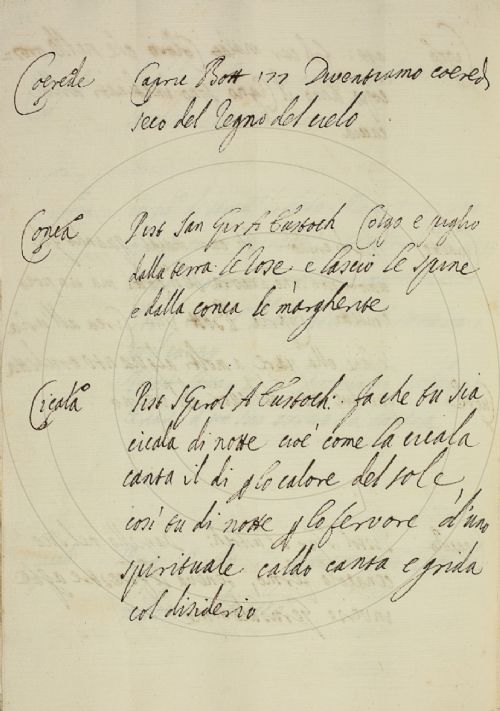 Coerede Capric Bott 177 Diventiamo coeredi
seco del Regno del cielo
Conca Pist San Gir A Eustoch Colgo e piglio
dalla terra le rose e lascio le spine
e dalla conca le margherite
Cicala Pist S Girol A Eustoch. fa che tu sia
cicala di notte cioè come la cicala
canta il di p lo calore del sole,
così tu di notte p lo fervore d'uno
spirituale caldo canta e grida
col disiderio